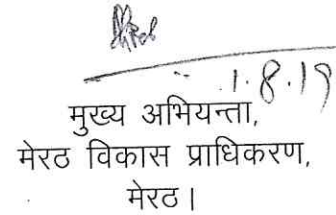 1.8.19
मुख्य अभियन्ता,
मेरठ विकास प्राधिकरण,
मेरठ।